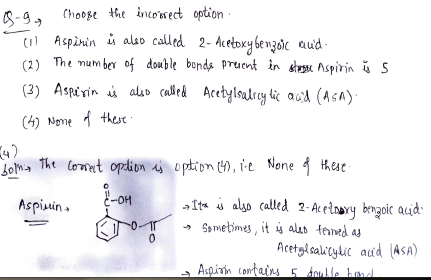 Q-9 → Choose the incorrect option.
(1) Aspirin is also called 2-Acetoxybenzoic acid.
(2) The number of double bonds present in Aspirin is 5
(3) Aspirin is also called Acetylsalicylic acid (ASA)
(4) None of these.
(4)
Soln → The correct option is option (4), i.e None of these
O
C-OH
Aspirin →
→ It is also called 2-Acetoxy benzoic acid.
O
O
→ Sometimes, it is also termed as
Acetylsalicylic acid (ASA)
→ Aspirin contains 5 double bond